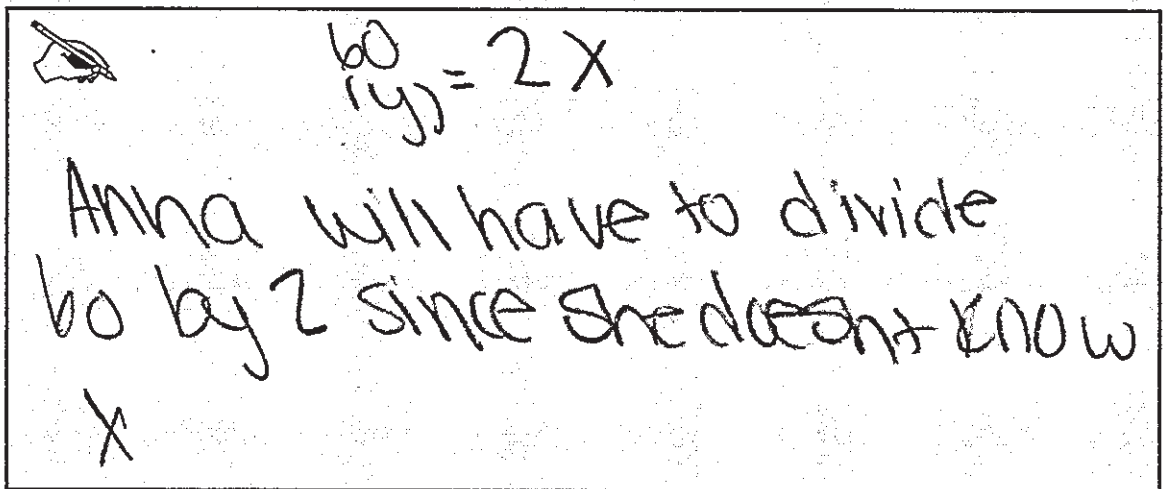 60
(y) = 2x
Anna will have to divide
60 by 2 since she doesn't know
x